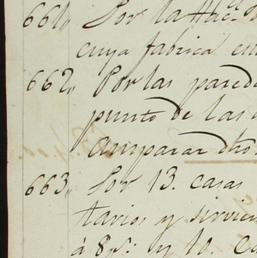 661,, Por la Haç.
cuya fabrica en
662,, Por las pared
punto de las
Amparar dho
663,, Por 13. casas
tarios y sirvie
à 8p.s y 10. Ca